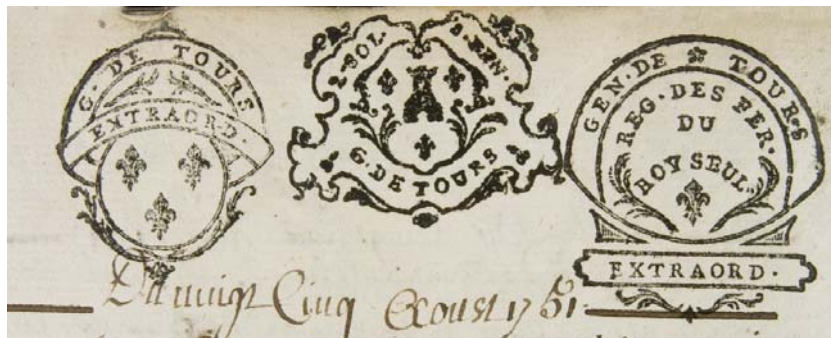 G. DE TOURS
EXTRAORD.
2. SOL. 8. DEN.
G. DE TOURS
GEN. DE TOURS
REG. DES FER.
DU
ROY SEUL
EXTRAORD.
Du vingt Cinq Aoust 1751